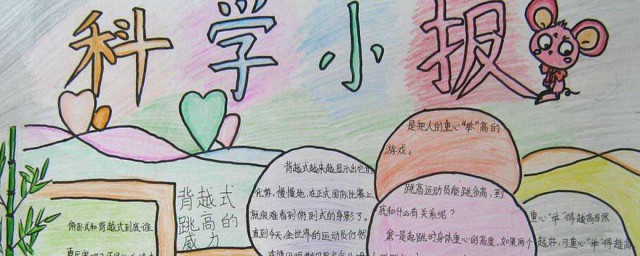 科学小报
俯卧式和背越式到底谁
背越式
跳高的
威力
背越式越来越显示出它的
优势,慢慢地,在正式国际比赛上
就很难看到俯卧式的身影了。
直到今天,全世界的运动员仍然
是把人的重心“举”高的
游戏。
跳高运动员能跳多高,到
底和什么有关系呢?
第一是起跳时身体重心的高度,如果两个
重心“举”得越高当然
越好,可重心“举”得越高